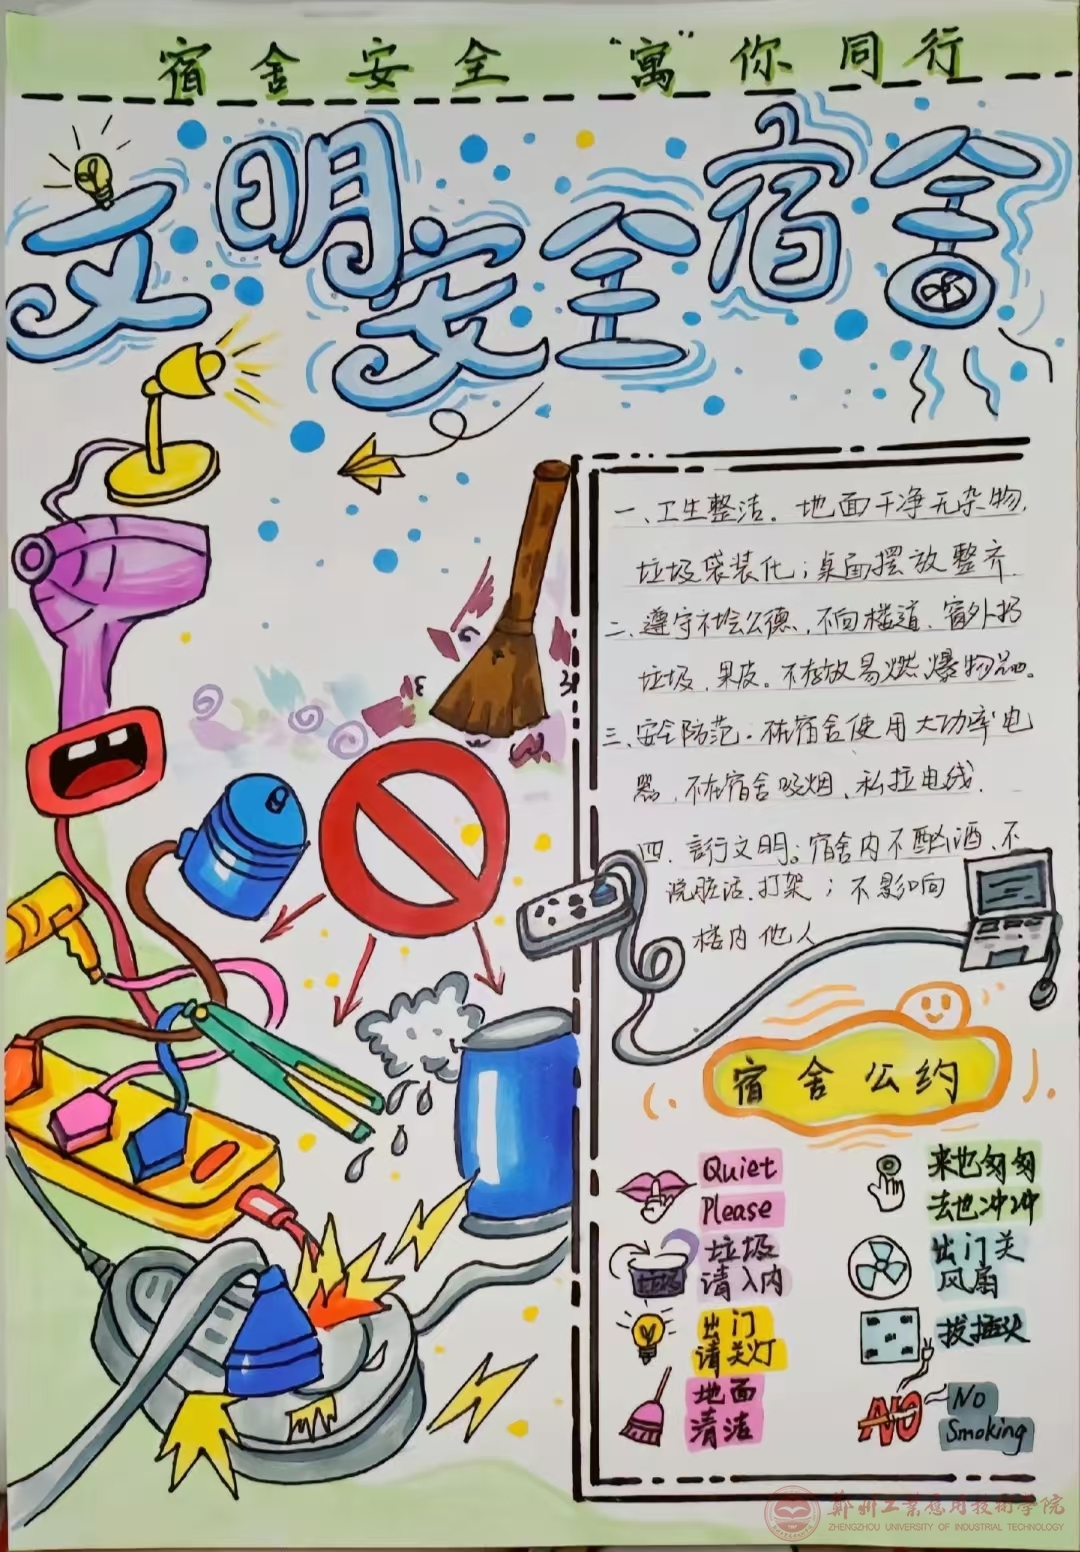 宿舍安全 "寓"你同行
文明安全宿舍
一、卫生整洁。地面干净无杂物,
垃圾袋装化；桌面摆放整齐.
二、遵守社会公德、不向楼道、窗外扔
垃圾、果皮。不存放易燃爆物品。
三、安全防范。不在宿舍使用大功率电
器、不在宿舍吸烟、私拉电线.
四、言行文明。宿舍内不酗酒、不
说脏话、打架；不影响
楼内他人
宿舍公约
Quiet
Please
来也匆匆
去也冲冲
垃圾
垃圾
请入内
出门关
风扇
出门
请关灯
拔插头
地面
清洁
NO
No
Smoking
郑州工业应用技术学院
ZHENGZHOU UNIVERSITY OF INDUSTRIAL TECHNOLOGY